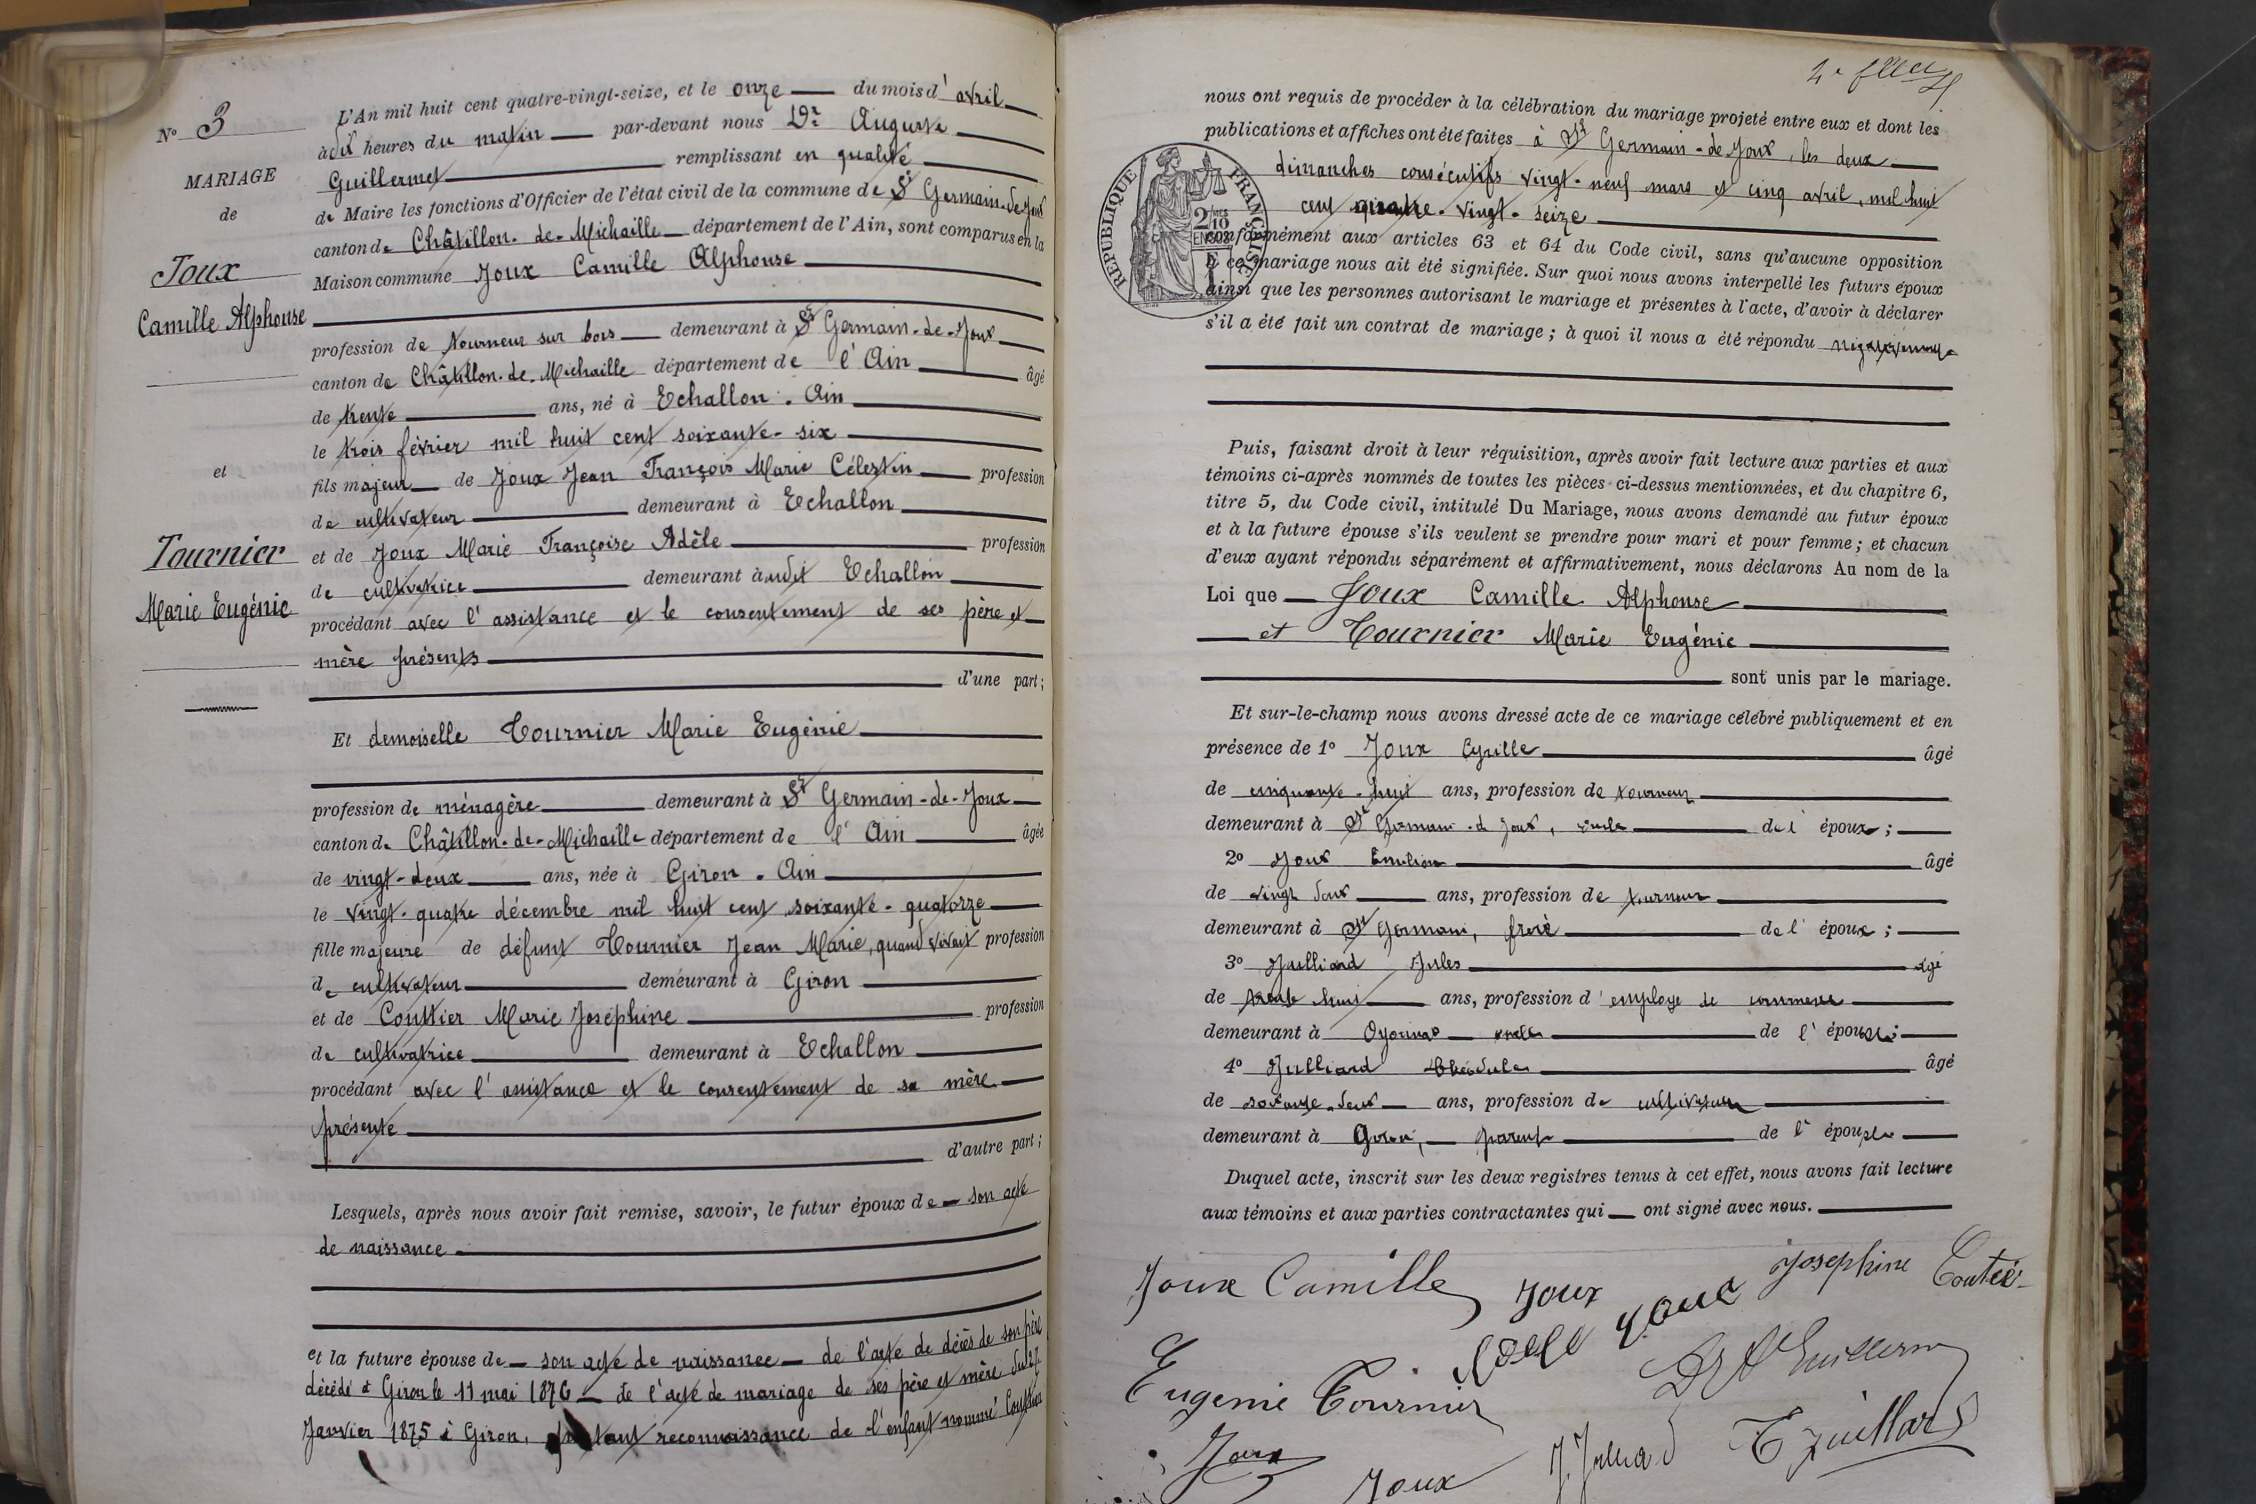 N° 3
MARIAGE
de
Joux
Camille Alphonse
et
Tournier
Marie Eugénie
L'An mil huit cent quatre-vingt-seize, et le onze du mois d'avril
à dix heures du matin par-devant nous Dr Auguste
Guillermet remplissant en qualité
de Maire les fonctions d'Officier de l'état civil de la commune de St Germain-de-Joux
canton de Châtillon-de-Michaille département de l'Ain, sont comparus en la
Maison commune Joux Camille Alphonse
profession de tourneur sur bois demeurant à St Germain-de-Joux
canton de Châtillon-de-Michaille département de l'Ain âgé
de trente ans, né à Echallon. Ain
le trois février mil huit cent soixante-six
fils majeur de Joux Jean François Marie Célestin profession
de cultivateur demeurant à Echallon
et de Joux Marie Françoise Adèle profession
de cultivatrice demeurant à udit Echallon
procédant avec l'assistance et le consentement de ses père et
mère présents
d'une part;
Et demoiselle Tournier Marie Eugénie
profession de ménagère demeurant à St Germain-de-Joux
canton de Châtillon-de-Michaille département de l'Ain âgée
de vingt-deux ans, née à Giron. Ain
le vingt-quatre décembre mil huit cent soixante-quatorze
fille majeure de défunt Tournier Jean Marie, quand vivait profession
de cultivateur demeurant à Giron
et de Couttier Marie Joséphine profession
de cultivatrice demeurant à Echallon
procédant avec l'assistance et le consentement de sa mère
présente
d'autre part;
Lesquels, après nous avoir fait remise, savoir, le futur époux de son acte
de naissance
et la future épouse de son acte de naissance de l'acte de décès de son père
décédé à Giron le 11 mai 1876 de l'acte de mariage de ses père et mère du
Janvier 1875 à Giron, portant reconnaissance de l'enfant nommé Couttier
2e
nous ont requis de procéder à la célébration du mariage projeté entre eux et dont les
publications et affiches ont été faites à St Germain-de-Joux, les deux
dimanches consécutifs vingt-neuf mars et cinq avril, mil huit
cent quatre-vingt-seize
conformément aux articles 63 et 64 du Code civil, sans qu'aucune opposition
à ce mariage nous ait été signifiée. Sur quoi nous avons interpellé les futurs époux
ainsi que les personnes autorisant le mariage et présentes à l'acte, d'avoir à déclarer
s'il a été fait un contrat de mariage; à quoi il nous a été répondu négativement
RÉPUBLIQUE FRANÇAISE
2/10
EN SUS
Puis, faisant droit à leur réquisition, après avoir fait lecture aux parties et aux
témoins ci-après nommés de toutes les pièces ci-dessus mentionnées, et du chapitre 6,
titre 5, du Code civil, intitulé Du Mariage, nous avons demandé au futur époux
et à la future épouse s'ils veulent se prendre pour mari et pour femme; et chacun
d'eux ayant répondu séparément et affirmativement, nous déclarons Au nom de la
Loi que Joux Camille Alphonse
et Tournier Marie Eugénie
sont unis par le mariage.
Et sur-le-champ nous avons dressé acte de ce mariage célébré publiquement et en
présence de 1° Joux Cyrille âgé
de cinquante-huit ans, profession de tourneur
demeurant à St Germain-de Joux, oncle de l'époux;
2° Joux Emilien âgé
de vingt deux ans, profession de tourneur
demeurant à St Germain, frère de l'époux;
3° Juilliard Jules âgé
de trente huit ans, profession d'employé de commerce
demeurant à Oyonnax oncle de l'épouse;
4° Juilliard Théodule âgé
de soixante-deux ans, profession de cultivateur
demeurant à Giron, parent de l'épouse
Duquel acte, inscrit sur les deux registres tenus à cet effet, nous avons fait lecture
aux témoins et aux parties contractantes qui ont signé avec nous.
Joux Camille Joux Joux Josephine Coutié
Eugenie Tournier Dr A Guillermet
Joux Joux J. Julliard T Juillard